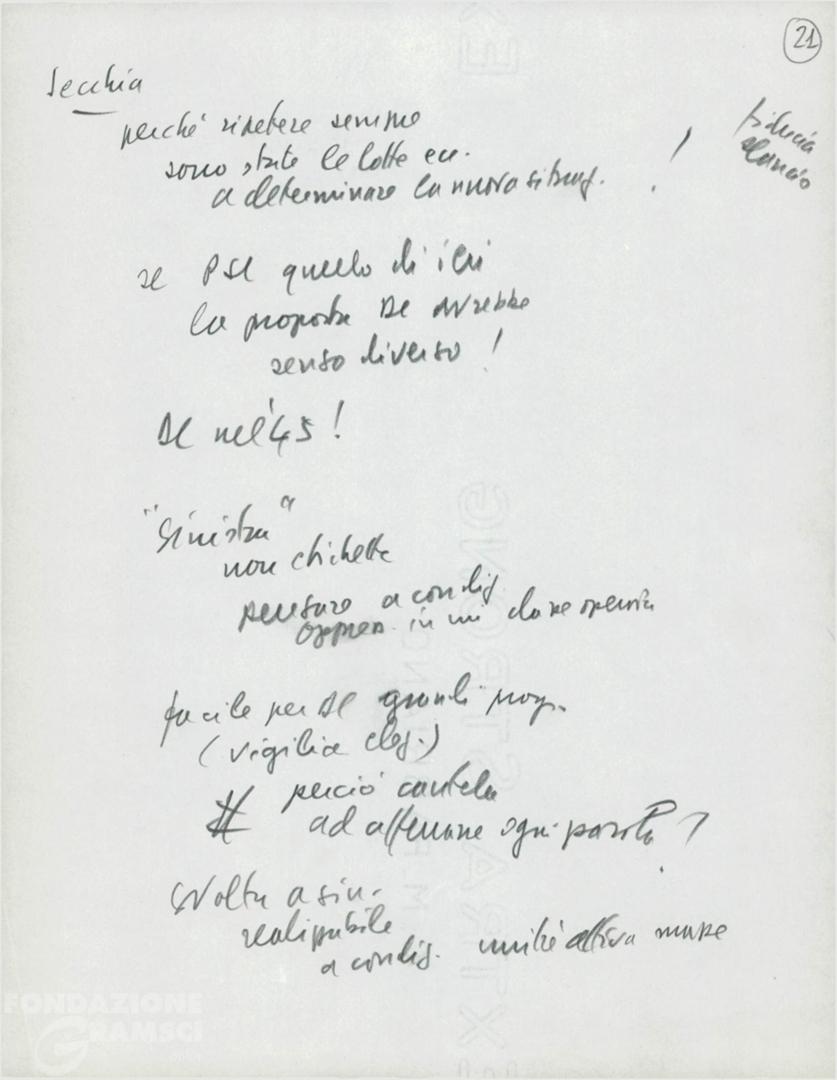 21
Secchia
perché ripetere sempre
sono state le lotte ecc.
a determinare la nuova situaz. !
fiducia
slancio
se PSI quello di ieri
la proposta DC avrebbe
senso diverso !
DC nel '45 !
"Sinistra"
non etichetta
pensare a condiz
oppress. in cui classe operaia
facile per DC grandi prog.
(vigilia elez.)
# perciò cautela
ad afferrare ogni parola ?
Svolta a sin.
realizzabile
a condiz. unità attiva masse
FONDAZIONE
GRAMSCI